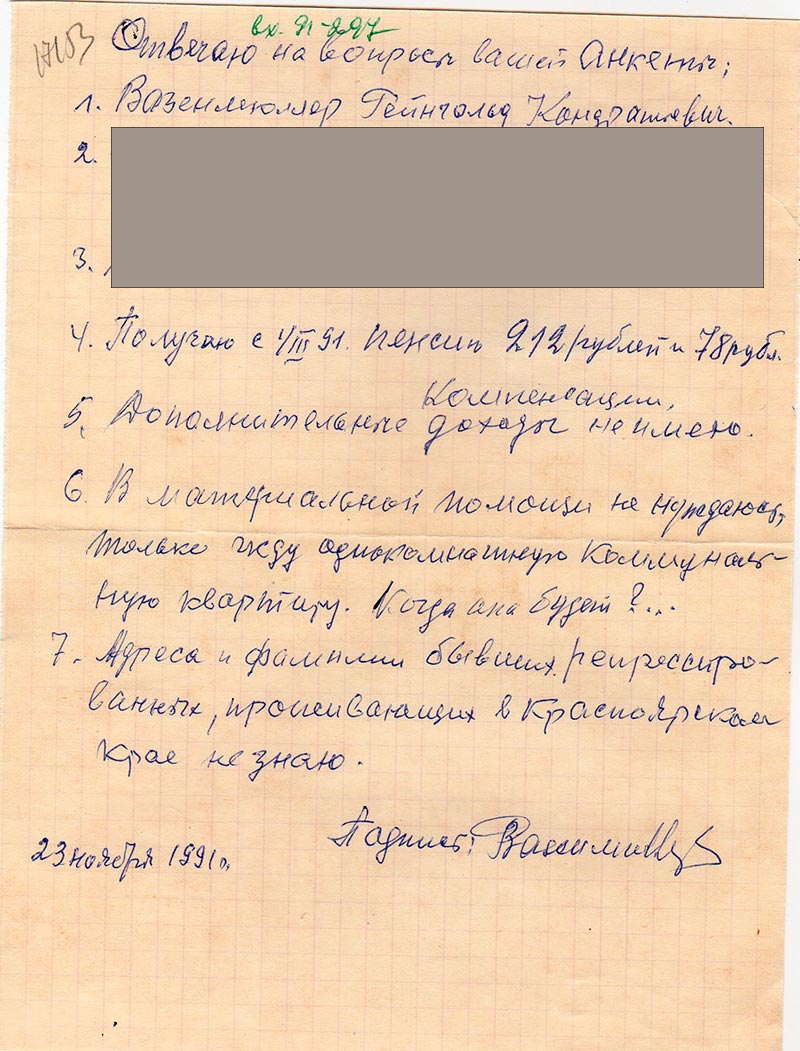 вх. 91-897
Отвечаю на вопросы вашей Анкеты;
1. Вазенмюллер Гейнгольд Кондратьевич.
2.
3.
4. Получаю с 4/III 91. пенсию 212 рублей и 78 рубл.
компенсации.
5. Дополнительные доходы не имею.
6. В материальной помощи не нуждаюсь,
только жду однокомнатную коммуналь-
ную квартиру. Когда она будет?...
7. Адреса и фамилии бывших репрессиро-
ванных, проживающих в Красноярском
крае не знаю.
23 ноября 1991 г. Подпись: